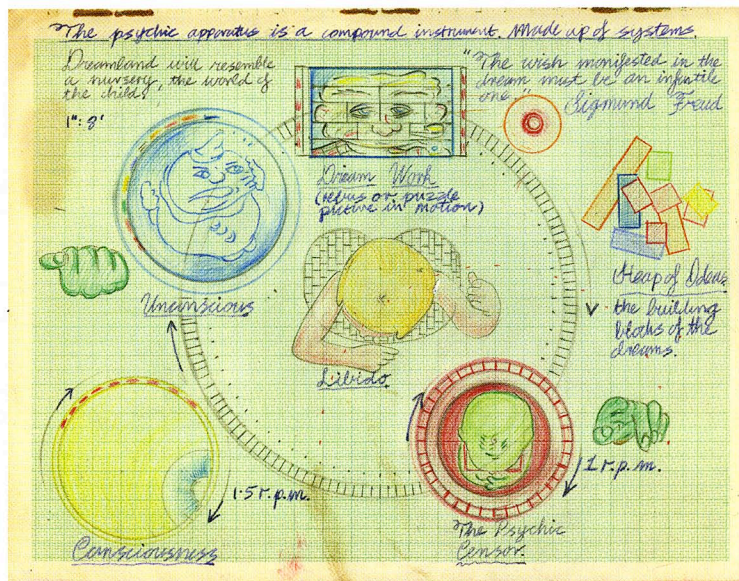 The psychic apparatus is a compound instrument. Made up of systems.
Dreamland will resemble
a nursery, the world of
the child.
1": 8'
"The wish manifested in the
dream must be an infantile
one."
Sigmund Freud
Dream Work
(rebus or puzzle
picture in motion)
Unconscious
Heap of Ideas
the building
blocks of the
dreams.
Libido
1 r.p.m.
1.5 r.p.m.
The Psychic
Censor.
Consciousness